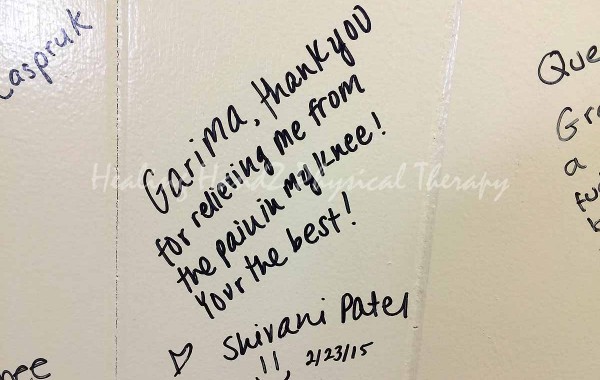 Caspruk
Garima, thank you
for relieving me from
the pain in my knee!
Your the best!
Shivani Patel
2/23/15
Healing Handz Physical Therapy
Que
Gre
a